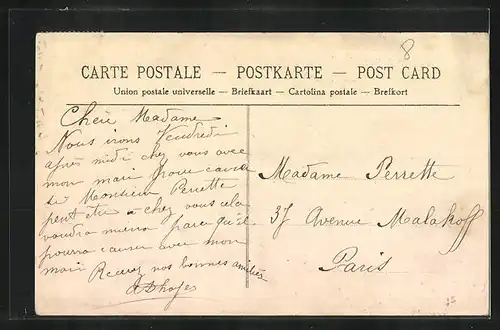 8
CARTE POSTALE — POSTKARTE — POST CARD
Union postale universelle — Briefkaart — Cartolina postale — Brefkort
Chère Madame
Nous irons Vendredi
après midi chez vous avec
mon mari pour causer
de Monsieur Perrette
peut être chez vous cela
voudra mieux parce qu'il
pourra causer avec mon
mari Recevez nos bonnes amitiés
Madame Perrette
37 Avenue Malakoff
Paris